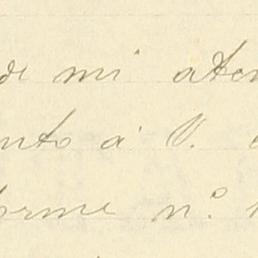 de mi aten
nto á V.
orme n.º